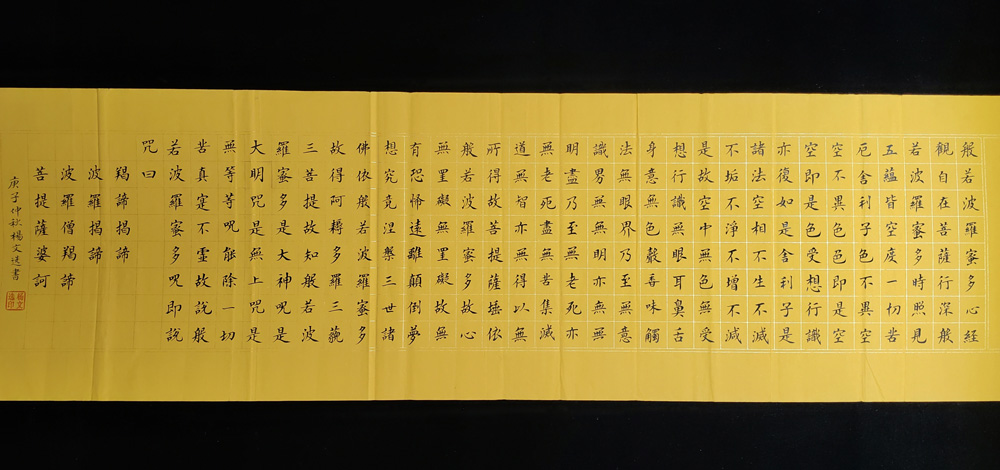 般若波羅蜜多心経
觀自在菩薩行深般
若波羅蜜多時照見
五蘊皆空度一切苦
厄舍利子色不異空
空不異色色即是空
空即是色受想行識
亦復如是舍利子是
諸法空相不生不滅
不垢不淨不增不減
是故空中無色無受
想行識無眼耳鼻舌
身意無色聲香味觸
法無眼界乃至無意
識界無無明亦無無
明盡乃至無老死亦
無老死盡無苦集滅
道無智亦無得以無
所得故菩提薩埵依
般若波羅蜜多故心
無罣礙無罣礙故無
有恐怖遠離顛倒夢
想究竟涅槃三世諸
佛依般若波羅蜜多
故得阿耨多羅三藐
三菩提故知般若波
羅蜜多是大神呪是
大明呪是無上呪是
無等等呪能除一切
苦真寔不虛故說般
若波羅蜜多呪即說
咒曰
羯諦揭諦
波羅揭諦
波羅僧羯諦
菩提薩婆訶
庚子仲秋楊文書